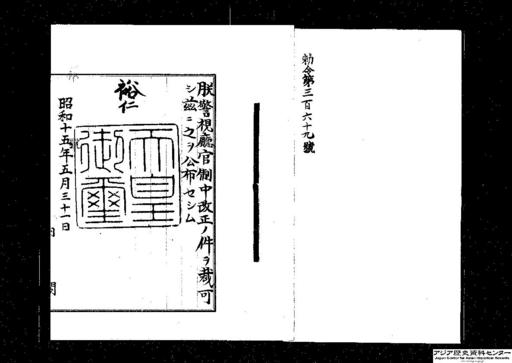 勅令第三百六十九號
朕警視廳官制中改正ノ件ヲ裁可
シ茲ニ之ヲ公布セシム
裕仁
天皇
御璽
昭和十五年五月三十一日
内
閣
アジア歴史資料センター
Japan Center for Asian Historical Records